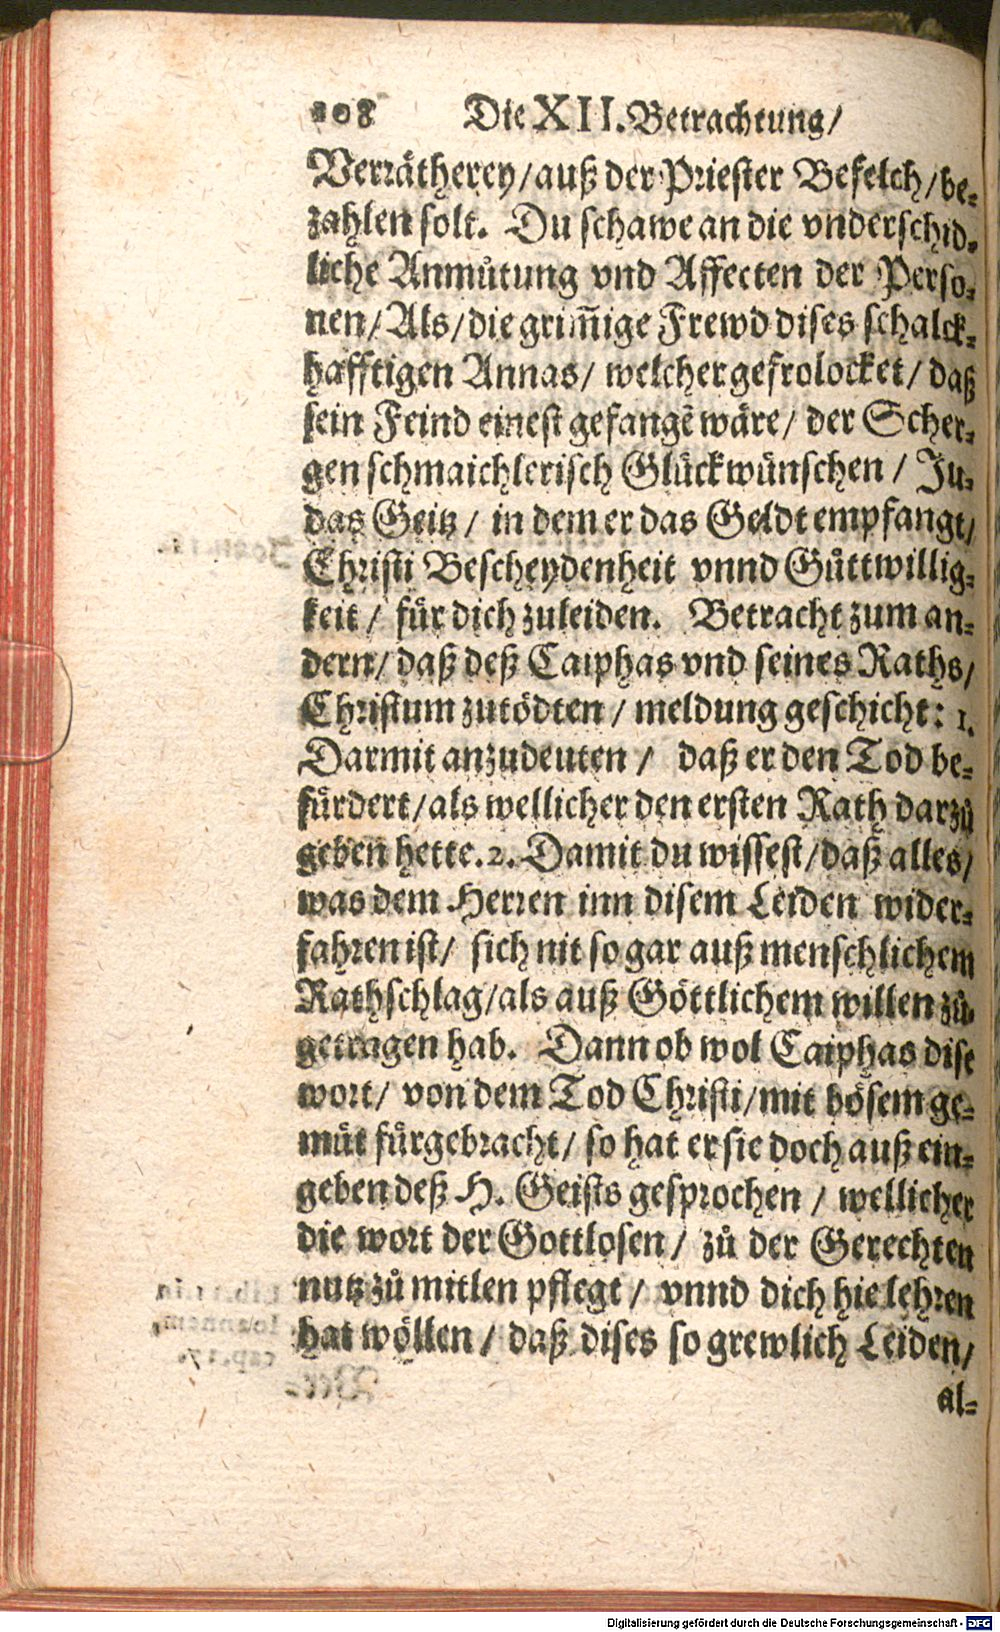 108 Die XII. Betrachtung/
Verrätherey/auß der Priester Befelch/be-
zahlen solt. Du schawe an die vnderschid-
liche Anmůtung vnd Affecten der Perso-
nen/Als/die grim̄ige Frewd dises schalck-
hafftigen Annas/ welcher gefrolocket/ daß
sein Feind einest gefangẽ wäre/ der Scher-
gen schmaichlerisch Glückwünschen / Ju-
das Geitz / in dem er das Geldt empfangt/
Christi Bescheydenheit vnnd Gůttwillig-
keit / für dich zuleiden. Betracht zum an-
dern/ daß deß Caiphas vnd seines Raths/
Christum zutödten / meldung geschicht: 1.
Darmit anzudeuten / daß er den Tod be-
fürdert/als wellicher den ersten Rath darzů
geben hette. 2. Damit du wissest/daß alles/
was dem Herren inn disem Leiden wider-
fahren ist/ sich nit so gar auß menschlichem
Rathschlag/als auß Göttlichem willen zů-
getragen hab. Dann ob wol Caiphas dise
wort/ von dem Tod Christi/mit bösem ge-
müt fürgebracht/ so hat er sie doch auß ein-
geben deß H. Geists gesprochen / wellicher
die wort der Gottlosen/ zů der Gerechten
nutz zů mitlen pflegt / vnnd dich hie lehren
hat wöllen / daß dises so grewlich Leiden/
al-
Digitalisierung gefördert durch die Deutsche Forschungsgemeinschaft - DFG